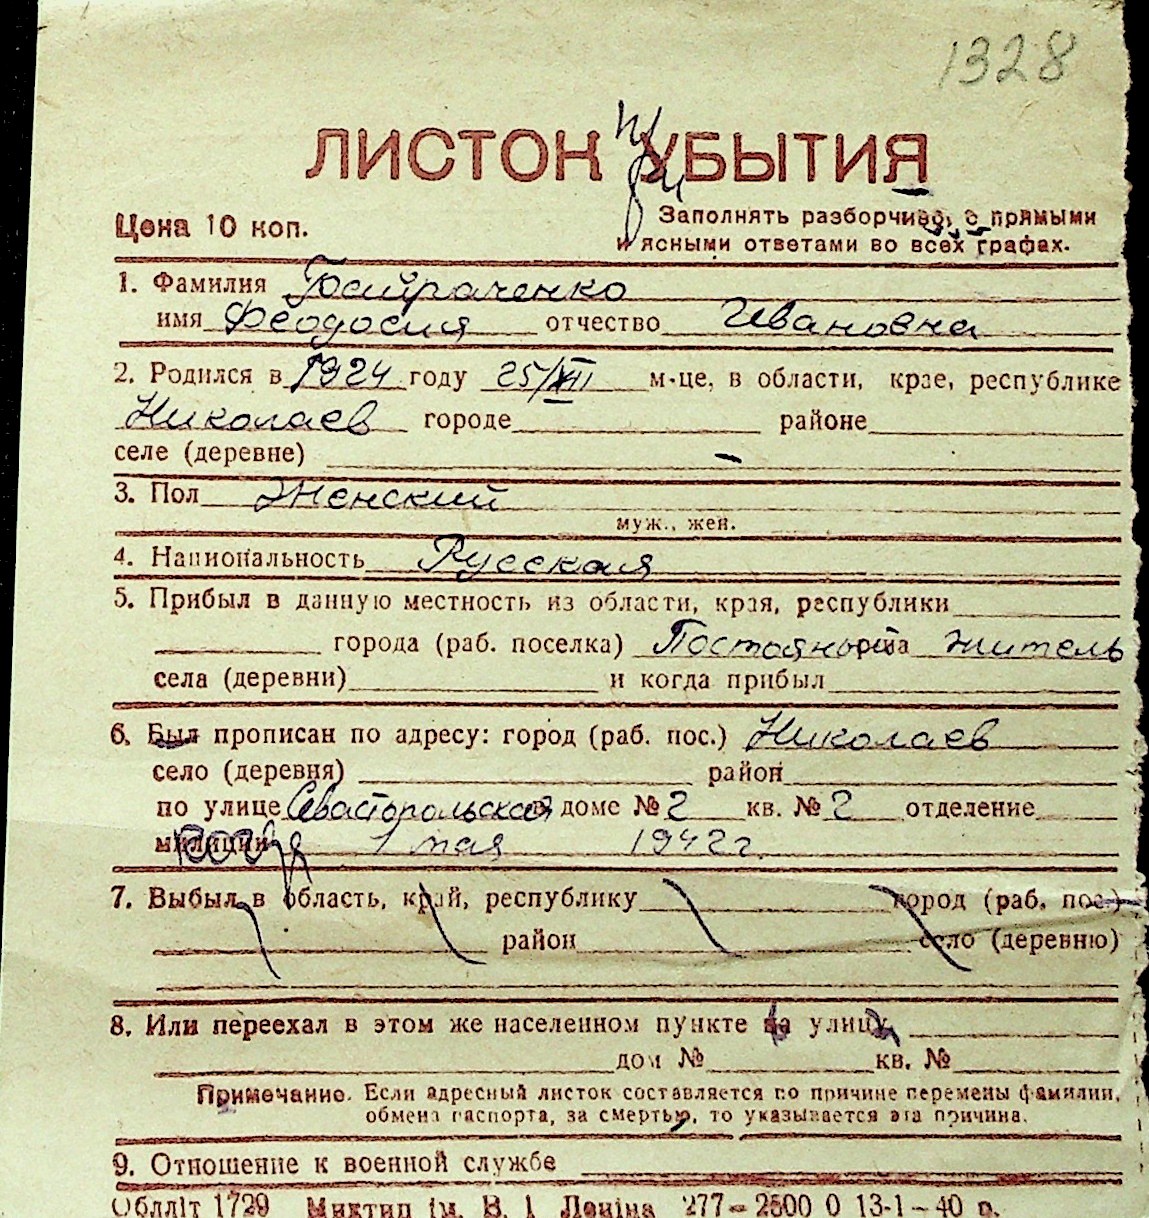 1328
ЛИСТОК при УБЫТИЯ
Цена 10 коп.
Заполнять разборчиво, с прямыми
и ясными ответами во всех графах.
1. Фамилия Байраченко
имя Феодосия отчество Ивановна
2. Родился в 1924 году 25/XII м-це, в области, крае, республике
Николаев городе районе
селе (деревне)
3. Пол Женский
муж., жен.
4. Национальность Русская
5. Прибыл в данную местность из области, края, республики
города (раб. поселка) Постоянный житель
села (деревни) и когда прибыл
6. Был прописан по адресу: город (раб. пос.) Николаев
село (деревня) район
по улице Севастопольская в доме № 2 кв. № 2 отделение
милиции 1 мая 1942 г.
7. Выбыл в область, край, республику город (раб. пос.)
район село (деревню)
8. Или переехал в этом же населенном пункте на улицу
дом № кв. №
Примечание. Если адресный листок составляется по причине перемены фамилии,
обмена паспорта, за смертью, то указывается эта причина.
9. Отношение к военной службе
Облліт 1729 Миктип ім. В. І. Леніна 277—2500 0 13-1—40 р.